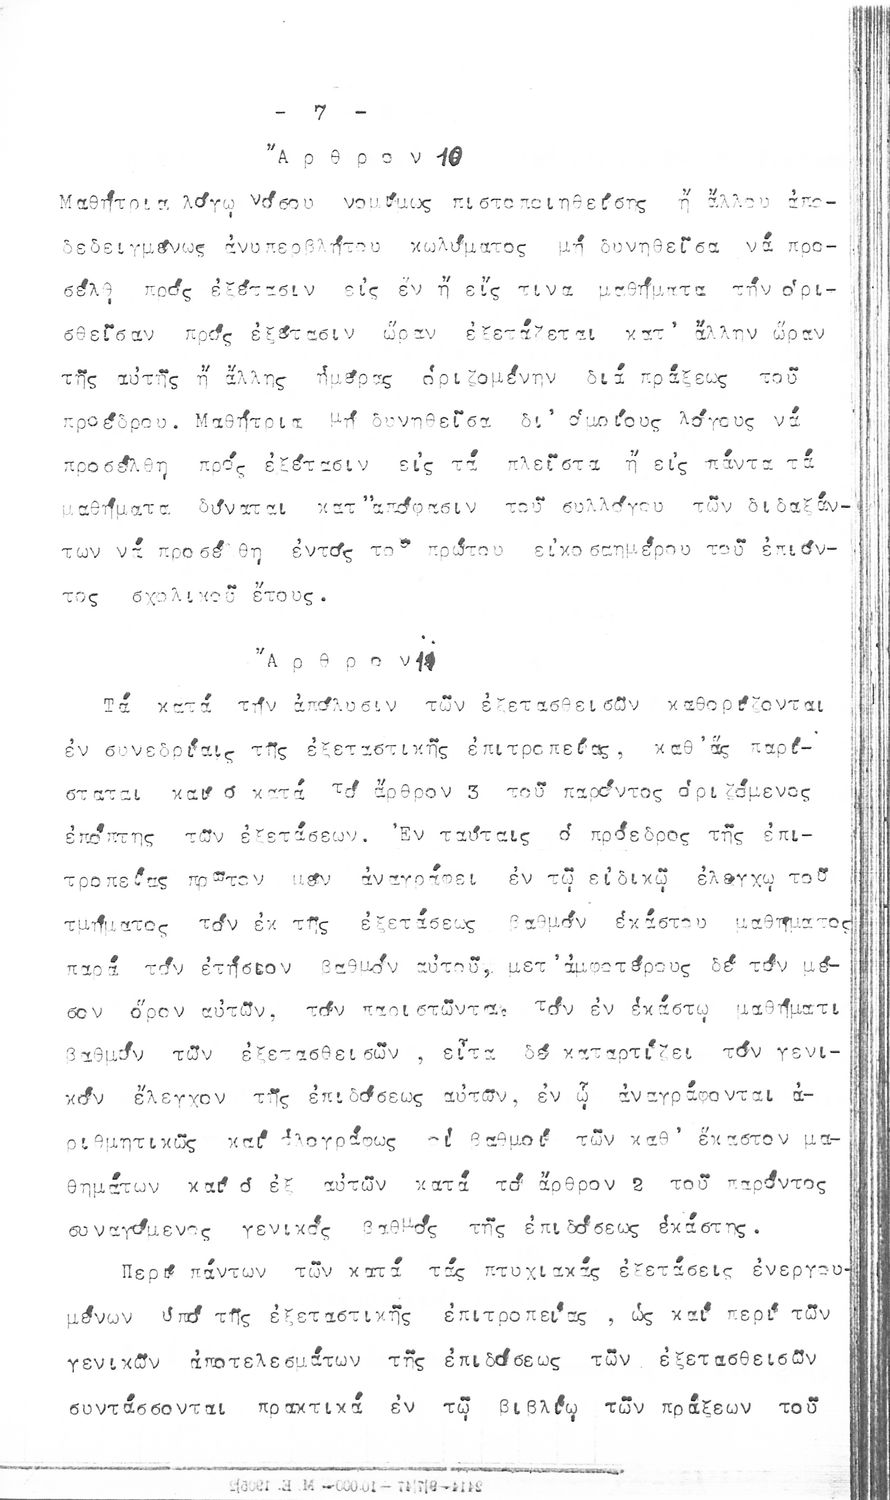 - 7 -
Ἄρθρον 10
Μαθήτρια λόγῳ νόσου νομίμως πιστοποιηθείσης ἤ ἄλλου ἀπο-
δεδειγμένως ἀνυπερβλήτου κωλύματος μή δυνηθεῖσα νά προ-
σέλθῃ πρός ἐξέτασιν εἰς ἕν ἤ εἴς τινα μαθήματα τήν ὁρι-
σθεῖσαν πρός ἐξέτασιν ὥραν ἐξετάζεται κατ' ἄλλην ὥραν
τῆς αὐτῆς ἤ ἄλλης ἡμέρας ὁριζομένην διά πράξεως τοῦ
προέδρου. Μαθήτρια μή δυνηθεῖσα δι' ὁμοίους λόγους νά
προσέλθη πρός ἐξέτασιν εἰς τά πλεῖστα ἤ εἰς πάντα τά
μαθήματα δύναται κατ'ἀπόφασιν τοῦ συλλόγου τῶν διδαξάν-
των νά προσέ θη ἐντός τοῦ πρώτου εἰκοσαημέρου τοῦ ἐπιόν-
τος σχολικοῦ ἔτους.
Ἄρθρον 11
Τά κατά τήν ἀπόλυσιν τῶν ἐξετασθεισῶν καθορίζονται
ἐν συνεδρίαις τῆς ἐξεταστικῆς ἐπιτροπείας, καθ'ἅς παρί-
σταται καί ὁ κατά τό ἄρθρον 3 τοῦ παρόντος ὁριζόμενος
ἐπόπτης τῶν ἐξετάσεων. Ἐν ταύταις ὁ πρόεδρος τῆς ἐπι-
τροπείας πρῶτον μέν ἀναγράφει ἐν τῷ εἰδικῷ ἐλέγχῳ τοῦ
τμήματος τόν ἐκ τῆς ἐξετάσεως βαθμόν ἑκάστου μαθήματος
παρά τόν ἐτήσιον βαθμόν αὐτοῦ, μετ'ἀμφοτέρους δέ τόν μέ-
σον ὅρον αὐτῶν, τόν παριστῶντα τόν ἐν ἑκάστῳ μαθήματι
βαθμόν τῶν ἐξετασθεισῶν , εἶτα δέ καταρτίζει τόν γενι-
κόν ἔλεγχον τῆς ἐπιδόσεως αὐτῶν, ἐν ᾧ ἀναγράφονται ἀ-
ριθμητικῶς καί ὁλογράφως οἱ βαθμοί τῶν καθ' ἕκαστον μα-
θημάτων καί ὁ ἐξ αὐτῶν κατά τό ἄρθρον 2 τοῦ παρόντος
συναγόμενος γενικός βαθμός τῆς ἐπιδόσεως ἑκάστης.
Περί πάντων τῶν κατά τάς πτυχιακάς ἐξετάσεις ἐνεργου-
μένων ὑπό τῆς ἐξεταστικῆς ἐπιτροπείας , ὡς καί περί τῶν
γενικῶν ἀποτελεσμάτων τῆς ἐπιδόσεως τῶν ἐξετασθεισῶν
συντάσσονται πρακτικά ἐν τῷ βιβλίῳ τῶν πράξεων τοῦ